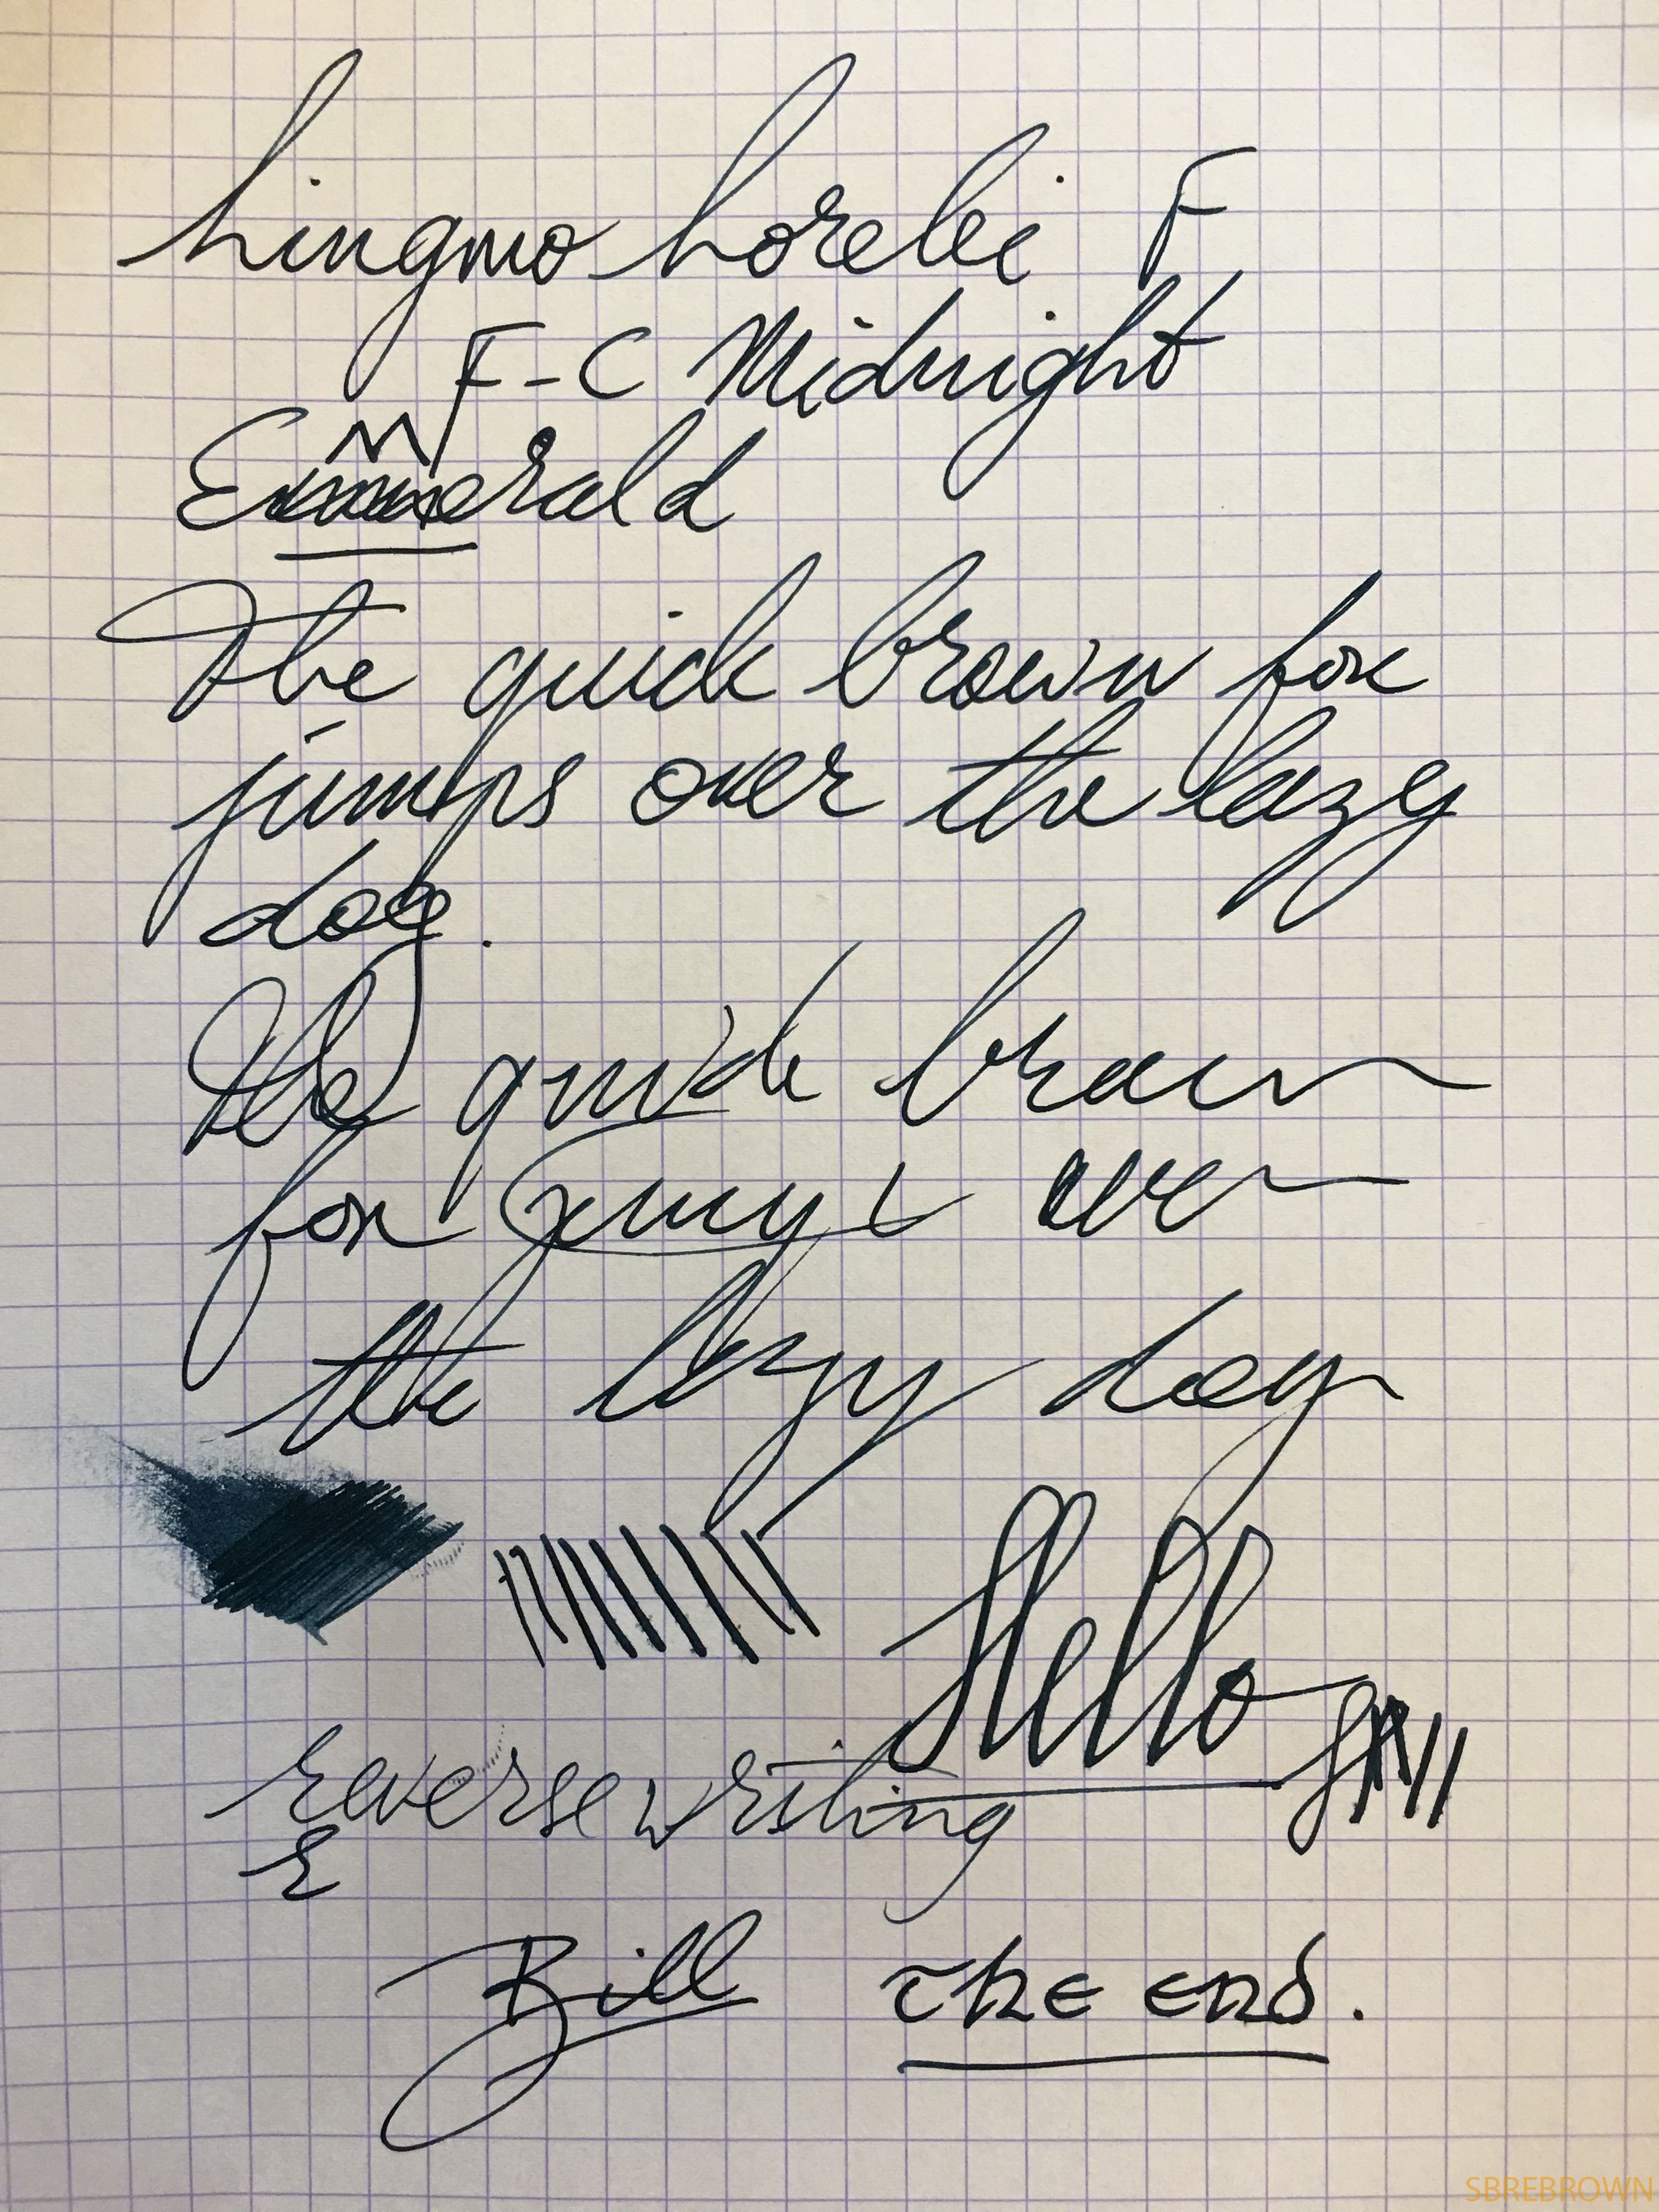 Lingmo Lorelei F
F-C Midnight
M
Emerald
The quick brown fox
jumps over the lazy
dog.
The quick brown
fox jumps over
the lazy dog
Hello
reverse writing
r
Bill The end.
SBREBROWN